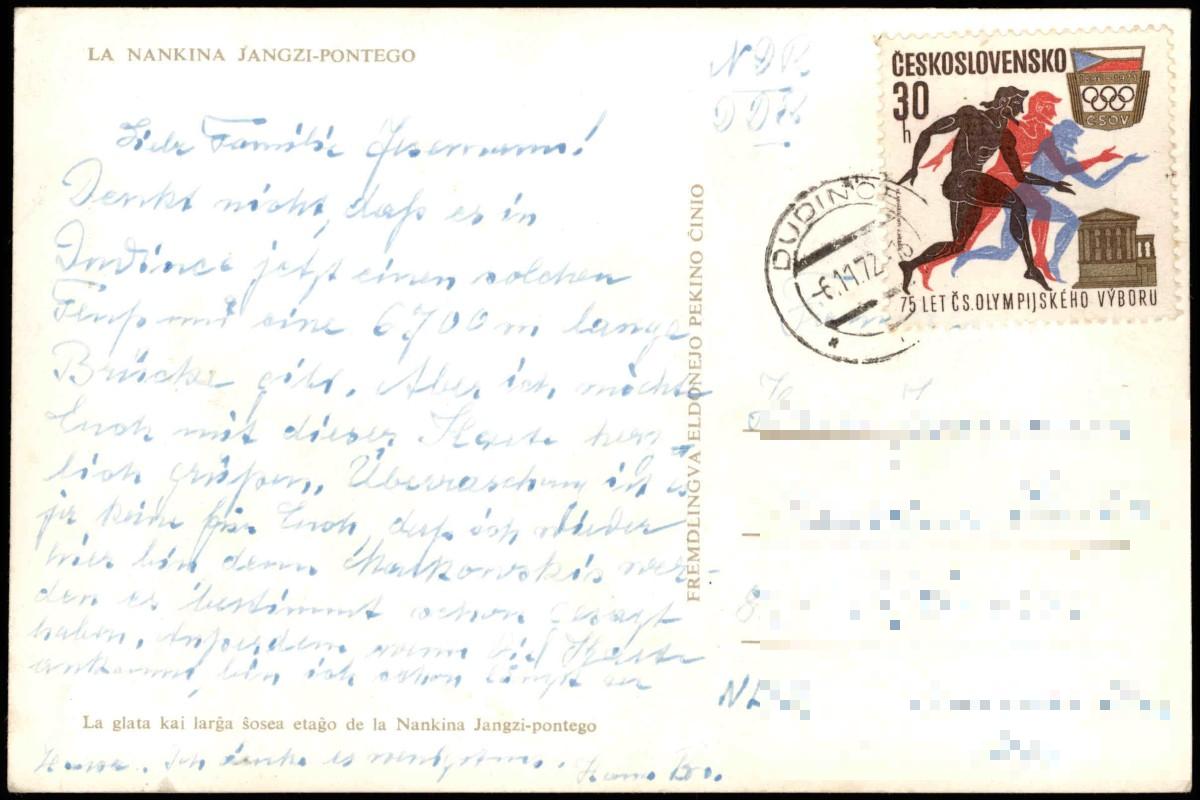 LA NANKINA JANGZI-PONTEGO
Liebe Familie
Denkt nicht, daß es in
jetzt einen solchen
Fluß und eine 6700 m lange
Brücke gibt. Aber ich möchte
Euch mit dieser Karte herz-
lich grüßen. Überraschung ist es
ja keine für Euch, daß ich wieder
hier bin denn Markowskis wer-
den es bestimmt schon gesagt
haben. Außerdem wenn die Karte
ankommt, bin ich schon längst zu
La glata kai larĝa ŝosea etaĝo de la Nankina Jangzi-pontego
Hause. Ich denke es wenigstens.
FREMDLINGVA ELDONEJO PEKINO ĈINIO
NDR
DDR
ČESKOSLOVENSKO
30
h
ČSOV
75 LET ČS. OLYMPIJSKÉHO VÝBORU
DUDINCE
-6.11.72-